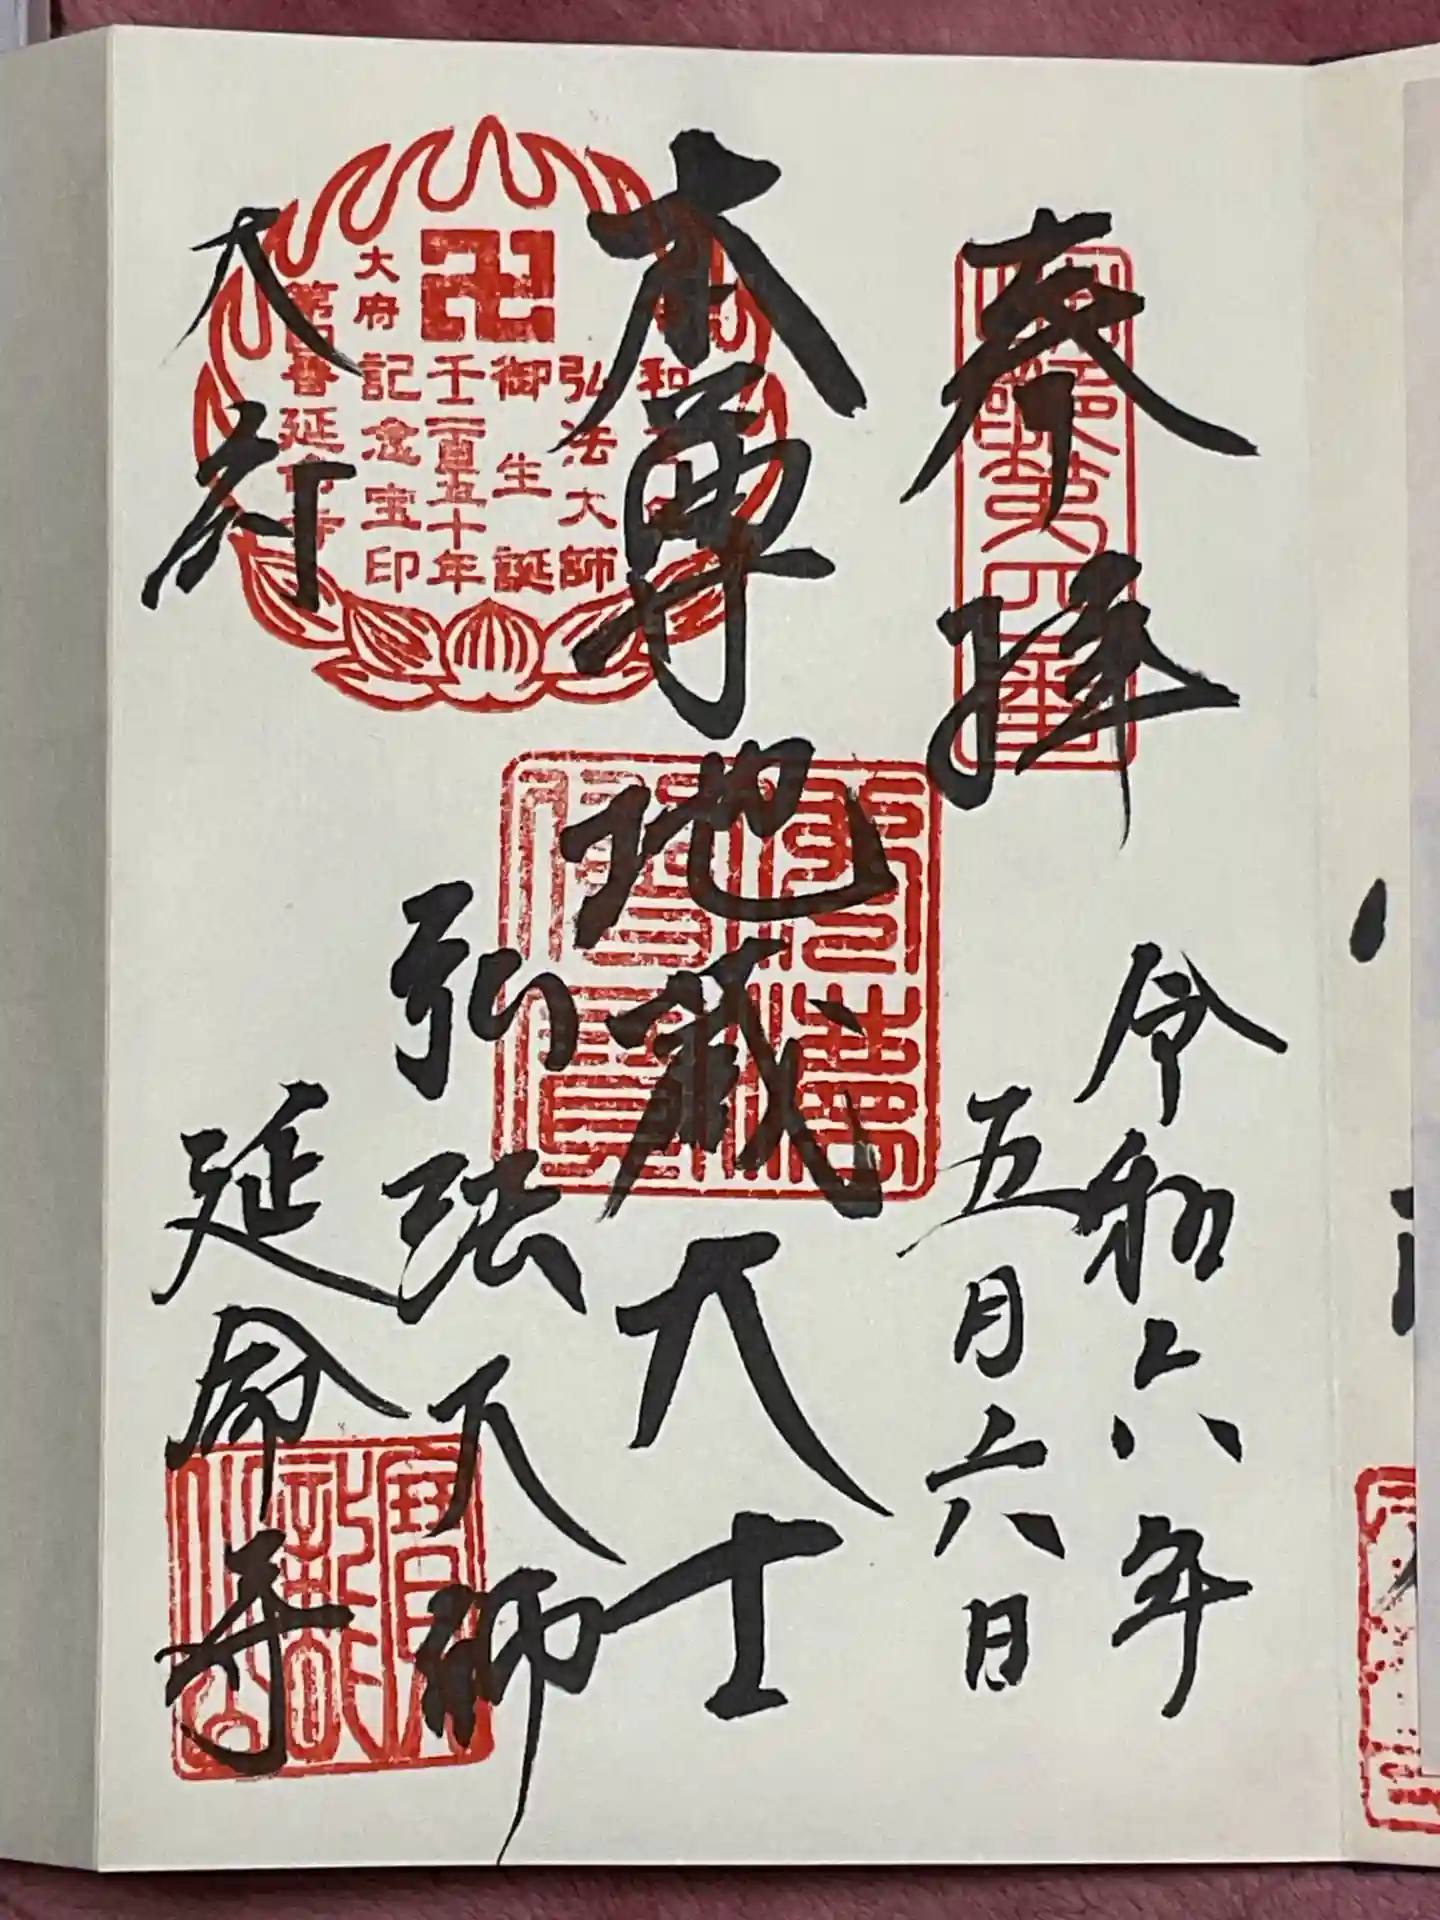 奉拝
令和六年
五月六日
本尊地蔵大士
弘法大師
大府
延命寺
弘法大師
御生誕
千二百五十年
記念宝印
大府
第四番延命寺